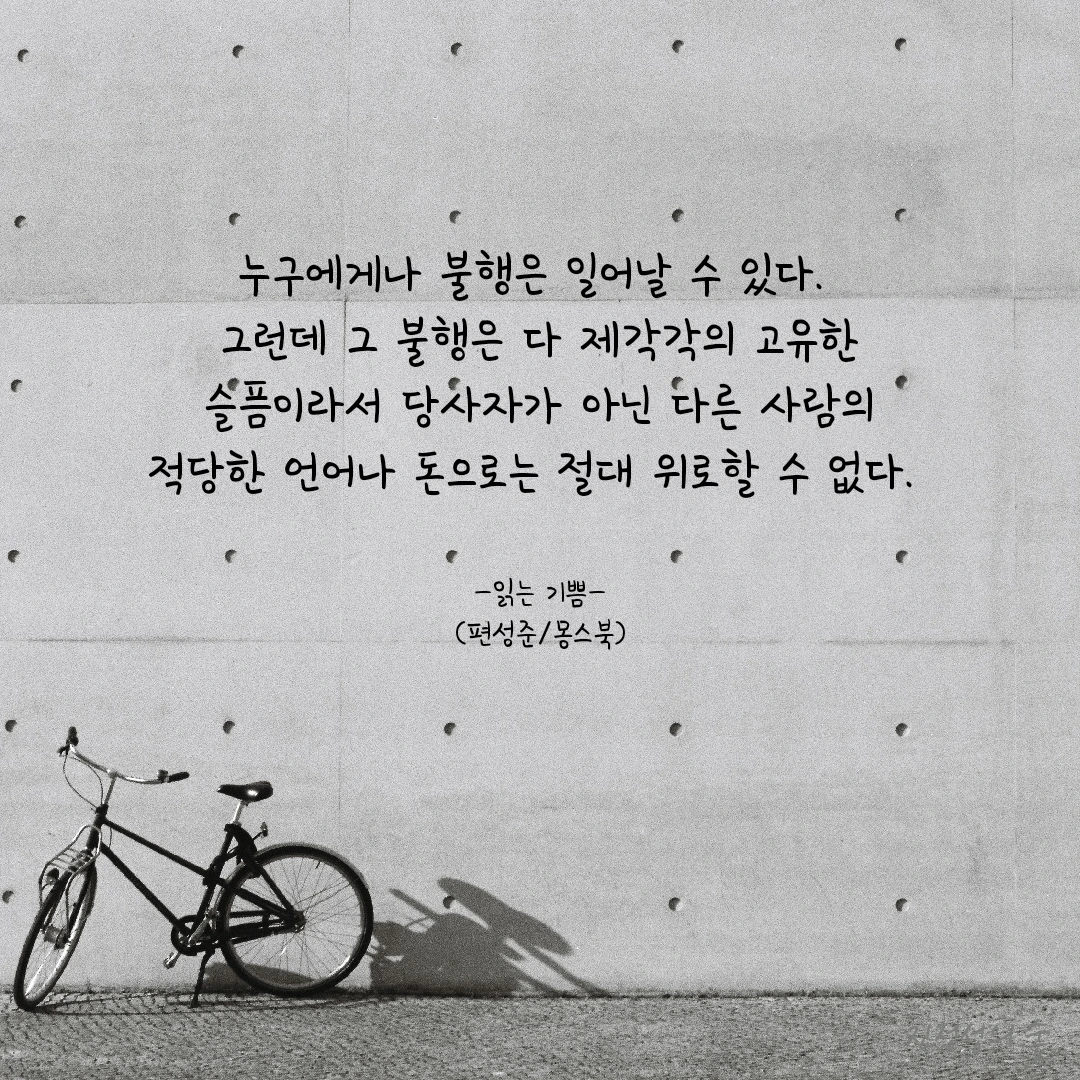 누구에게나 불행은 일어날 수 있다.
그런데 그 불행은 다 제각각의 고유한
슬픔이라서 당사자가 아닌 다른 사람의
적당한 언어나 돈으로는 절대 위로할 수 없다.
-읽는 기쁨-
(편성준/몽스북)